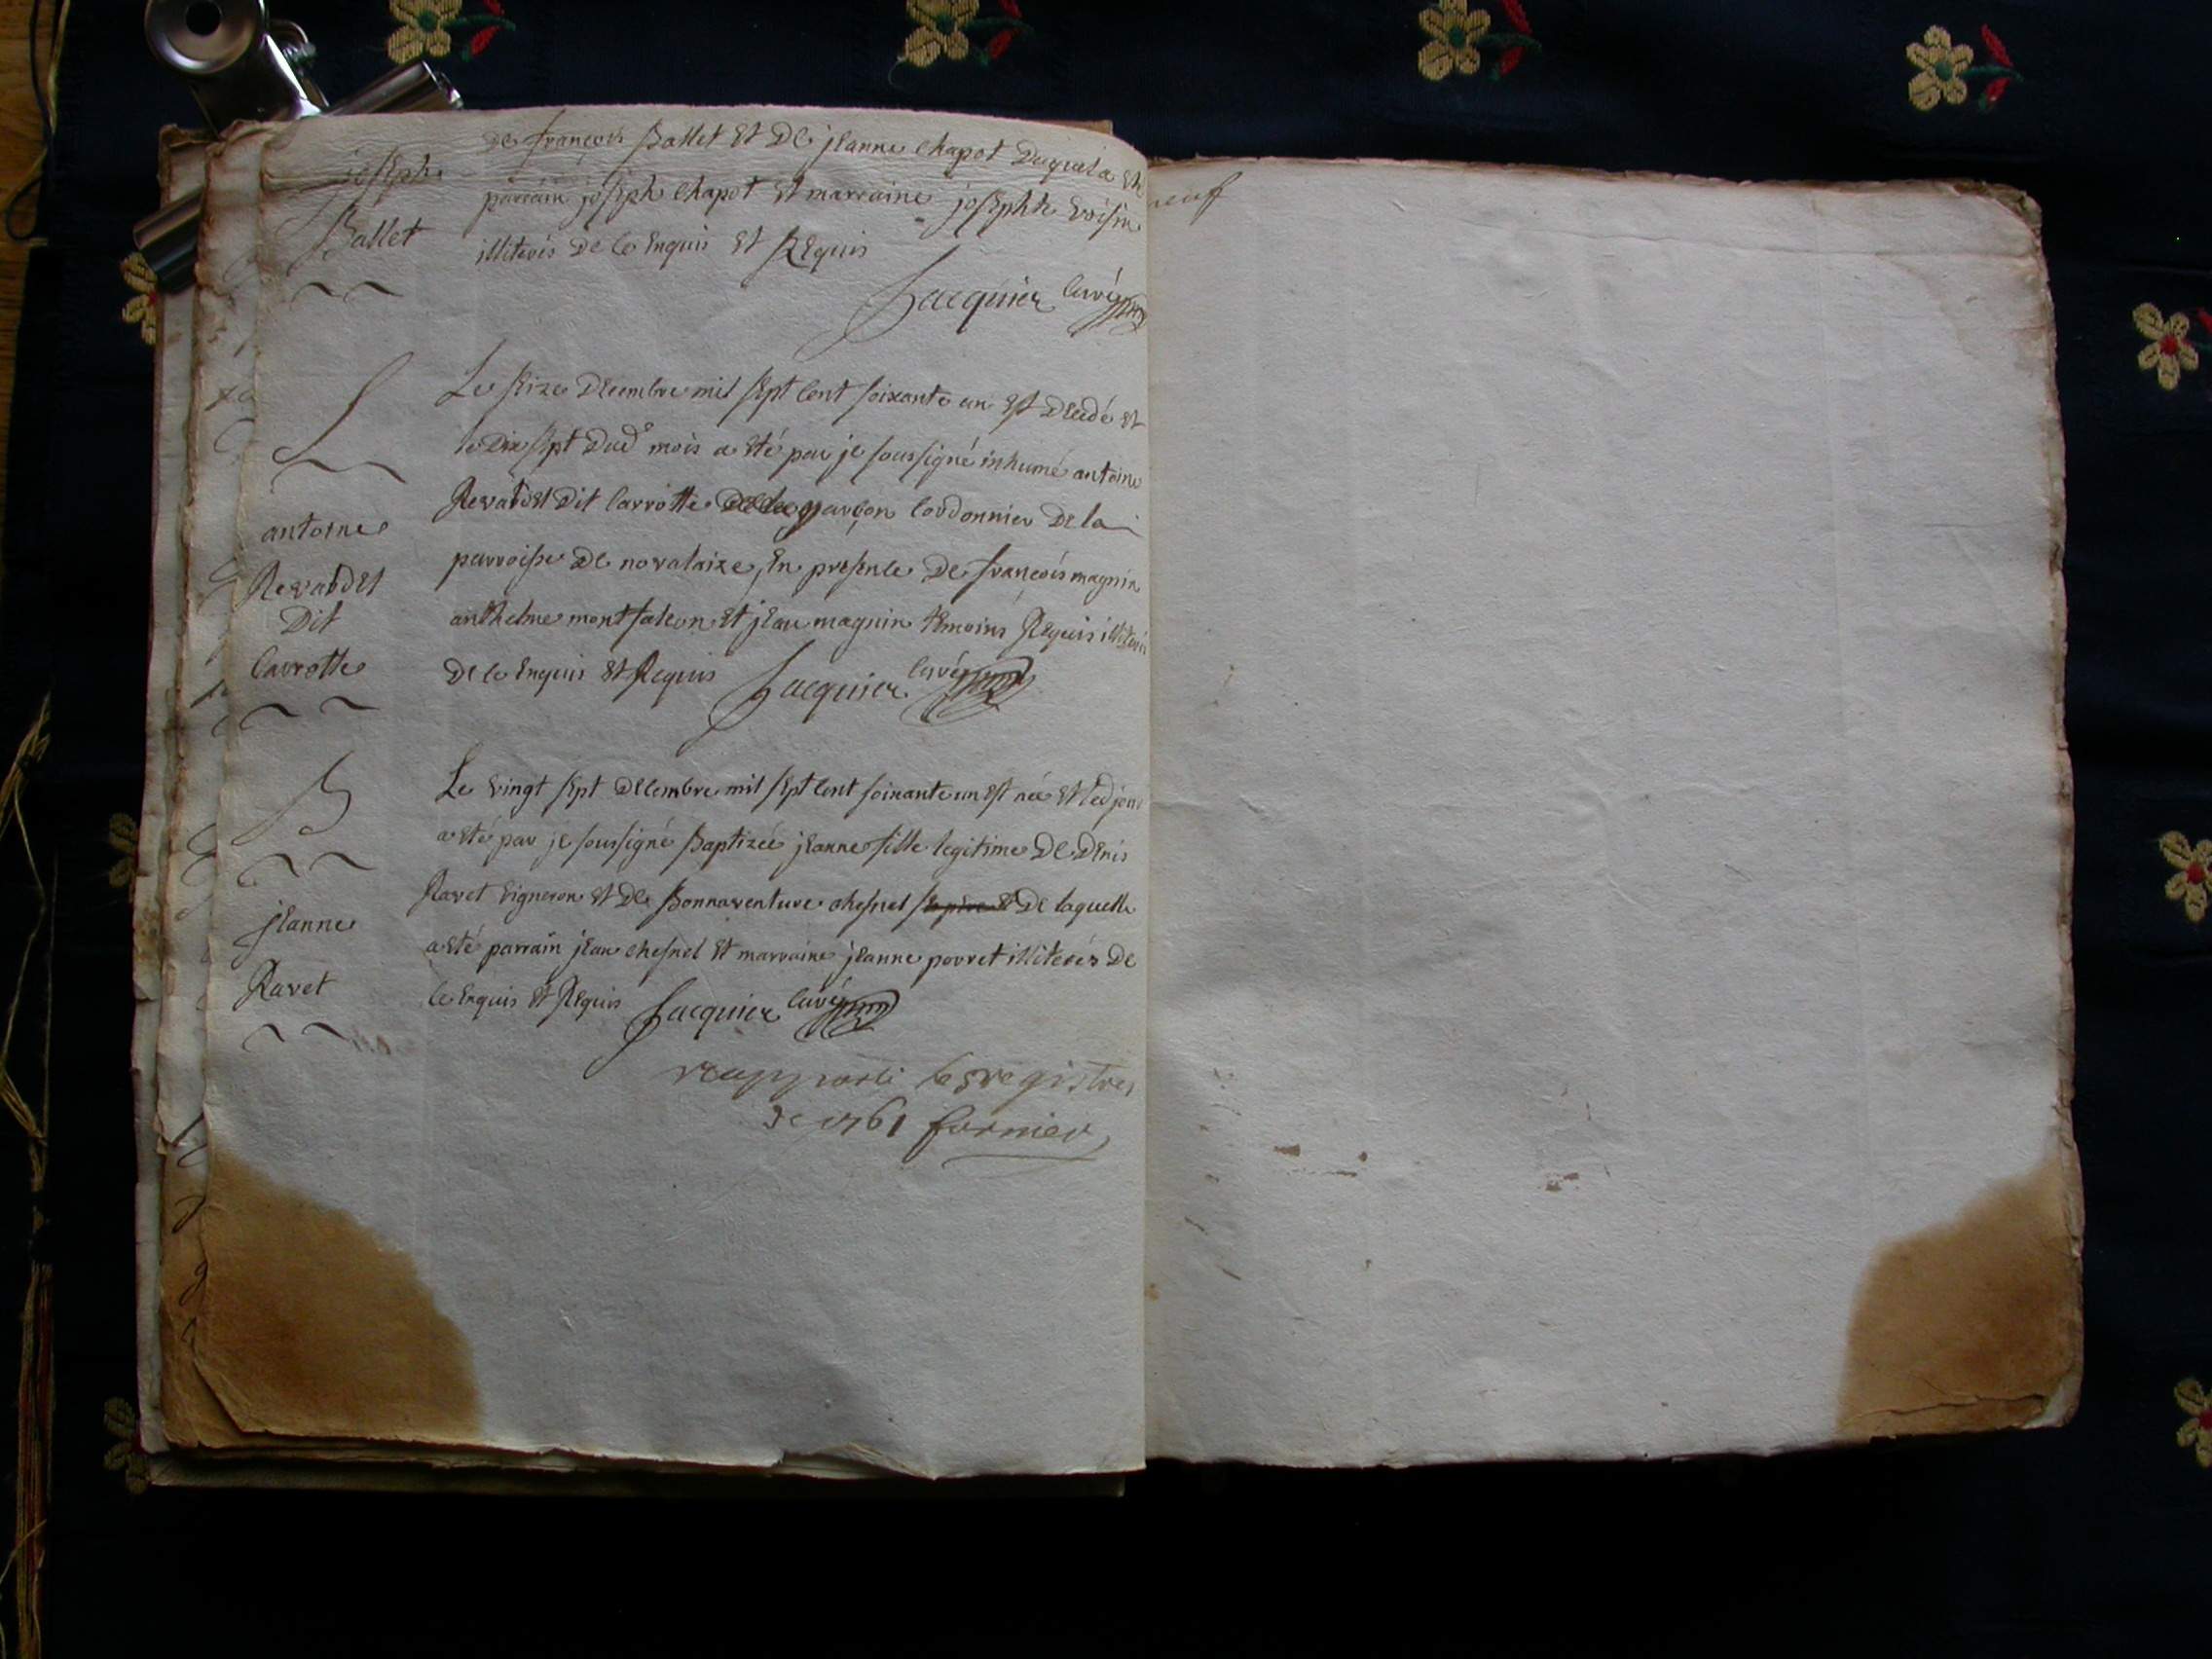 joseph
Ballet
de françois Ballet et de jeanne chapot duquel a eté
parrain joseph chapot et marraine josephte voisin
illiterés de ce enquis et Requis
Jacquier curé
antoine
Revardet
Dit
Carrotte
Le seize decembre mil sept cent soixante un est decedé et
le dix sept dud.° mois a eté par je soussigné inhumé antoine
Revardet dit Carrotte garçon cordonnier de la
parroisse de novalaize, en presence de françois magnin
anthelme montfalcon et jean magnin temoins Requis illiterés
de ce enquis et Requis Jacquier curé
B
jeanne
Ravet
Le vingt sept decembre mil sept cent soixante un est née et led jour
a eté par je soussigné Baptizée jeanne fille legitime de denis
Ravet vigneron et de Bonnaventure chesnel de laquelle
a eté parrain jean chesnel et marraine jeanne porret illiterés de
ce enquis et Requis Jacquier curé
les registres
de 1761 fornier
neuff